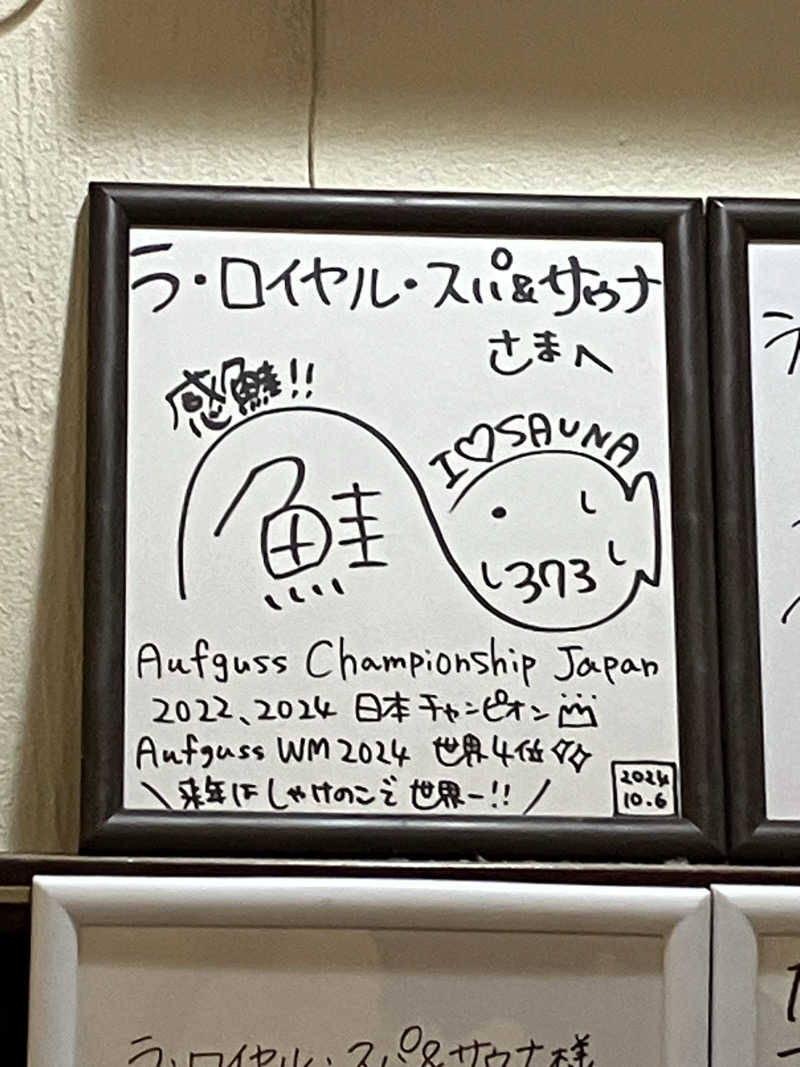 ラ・ロイヤル・スパ&サウナ
さまへ
感鮭!!
I♡SAUNA
鮭
し373
Aufguss Championship Japan
2022、2024 日本チャンピオン
Aufguss WM 2024 世界4位
\来年はしゃけのこで世界一!!/
2024
10.6
ラ・ロイヤル・スパ&サウナ様